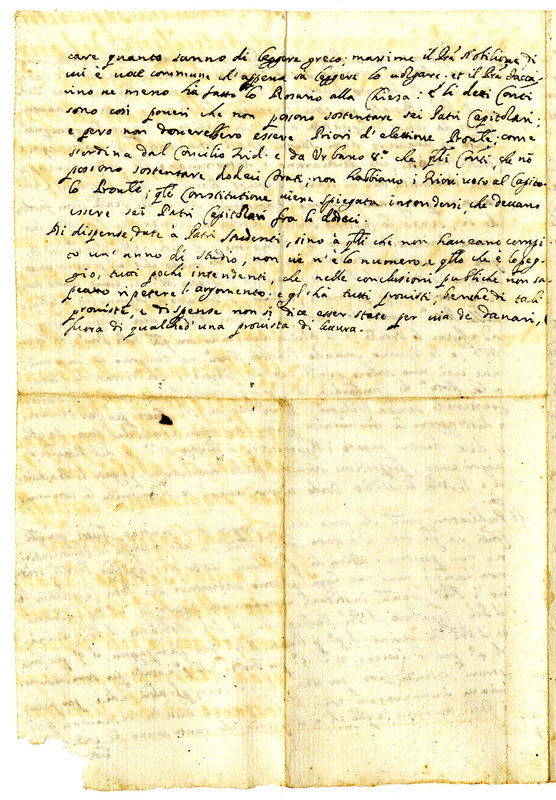 care quanto sanno di leggere greco; massime il Pre Nobilione di
cui è voce commune ch'appena sà leggere lo volgare. et il Pre
vino ne meno hà fatto lo Rosario alla Chiesa. E li detti Conti
sono così poveri che non possono sostentare sei Patri Capitolari;
e però non doverebbero essere Priori d'elettione Provle; come
s'ordina dal Concilio Trid. e da Urbano 8.o che qlli Conti, che nō
possono sostentare dodeci frati; non habbiano i Priori voto al Capito-
lo Provle; qlle Constitutione viene spiegata intendersi, che devano
essere sei Patri Capitolari fra li dodeci.
Di dispense, date a Patri studenti, sino à qlli che non haveano compi-
to un'anno di studio, non ve n'è lo numero, e qllo che è e peg-
gio, tutti pochi intendenti, che nelle conclusioni publiche non sa-
peano ripetere l'argomento. e gl'hà tutti provisti, benche di tali
proviste, e dispense non si dice esser state per via de danari,
fuora di qualched'una provista di